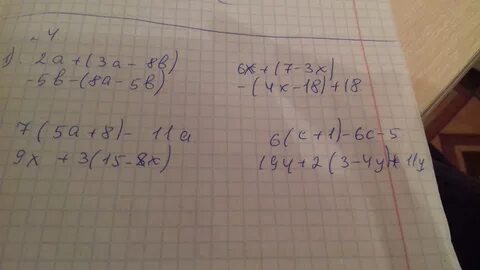 4
1) 2a+(3a-8b)
-5b-(8a-5b)
6x+(7-3x)
-(4x-18)+18
7(5a+8)-11a
9x+3(15-8x)
6(c+1)-6c-5
19y+2(3-4y)+11y